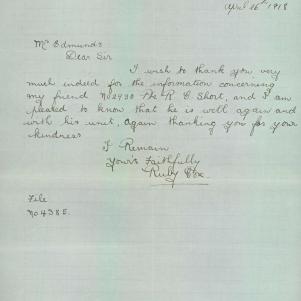 April 16th 1918
Mr Edmunds
Dear Sir
I wish to thank you very
much indeed for the information concerning
my friend No 2430 Pte R C Short, and I am
pleased to know that he is well again and
with his unit, again thanking you for your
kindness
I Remain
Your's Faithfully
Ruby Cox
File
No 438E.